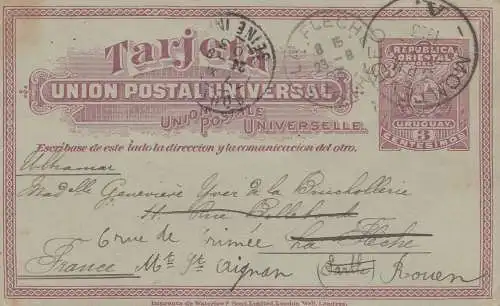 Tarjeta
REPUBLICA
ORIENTAL
UNION POSTAL UNIVERSAL
UNION POSTALE UNIVERSELLE
URUGUAY
3
CENTESIMOS
LA FLECHE
8 15
23 - 8
Escríbase de este lado la direccion y la comunicacion del otro.
Ultramar
Madelle Geneviève Yver de la Bruchollerie
11 Rue
6 rue de Crimée la Flèche
France Mt St Aignan (Sarthe) Rouen
Imprenta de Waterlow & Sons, Limited, London Wall, Londres.